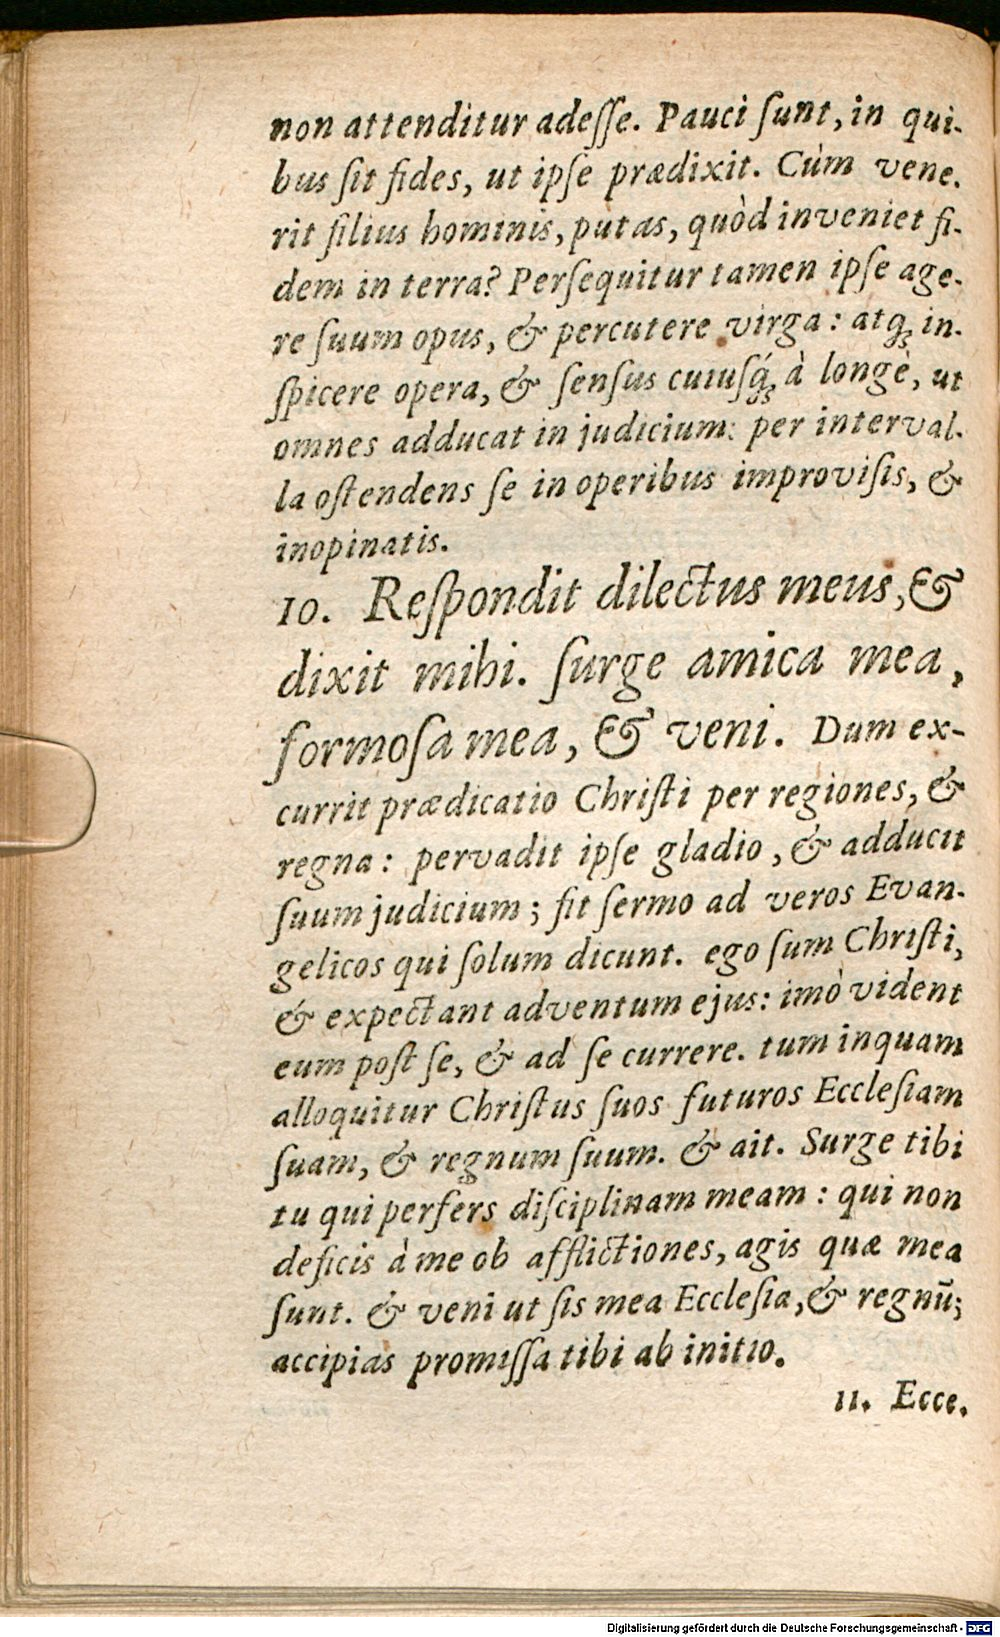 non attenditur adeſſe. Pauci ſunt, in qui-
bus ſit fides, ut ipſe prædixit. Cùm vene-
rit filius hominis, putas, quòd inveniet fi-
dem in terra? Perſequitur tamen ipſe age-
re ſuum opus, & percutere virga: atq; in-
ſpicere opera, & ſenſus cuiuſq́; à longè, ut
omnes adducat in judicium: per interval-
la oſtendens ſe in operibus improviſis, &
inopinatis.
10. Reſpondit dilectus meus, &
dixit mihi. ſurge amica mea,
formoſa mea, & veni. Dum ex-
currit prædicatio Chriſti per regiones, &
regna: pervadit ipſe gladio, & adducit
ſuum judicium; fit ſermo ad veros Evan-
gelicos qui ſolum dicunt. ego ſum Chriſti,
& expectant adventum ejus: imò vident
eum poſt ſe, & ad ſe currere. tum inquam
alloquitur Chriſtus ſuos futuros Eccleſiam
ſuam, & regnum ſuum. & ait. Surge tibi
tu qui perfers diſciplinam meam: qui non
deficis à me ob afflictiones, agis quæ mea
ſunt. & veni ut ſis mea Eccleſia, & regnū;
accipias promiſſa tibi ab initio.
11. Ecce.
Digitalisierung gefördert durch die Deutsche Forschungsgemeinschaft - DFG